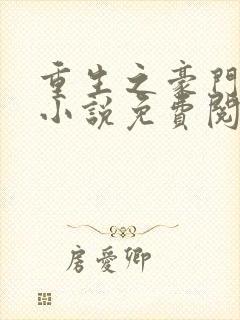 重生之豪門
小說免費閱
房愛卿